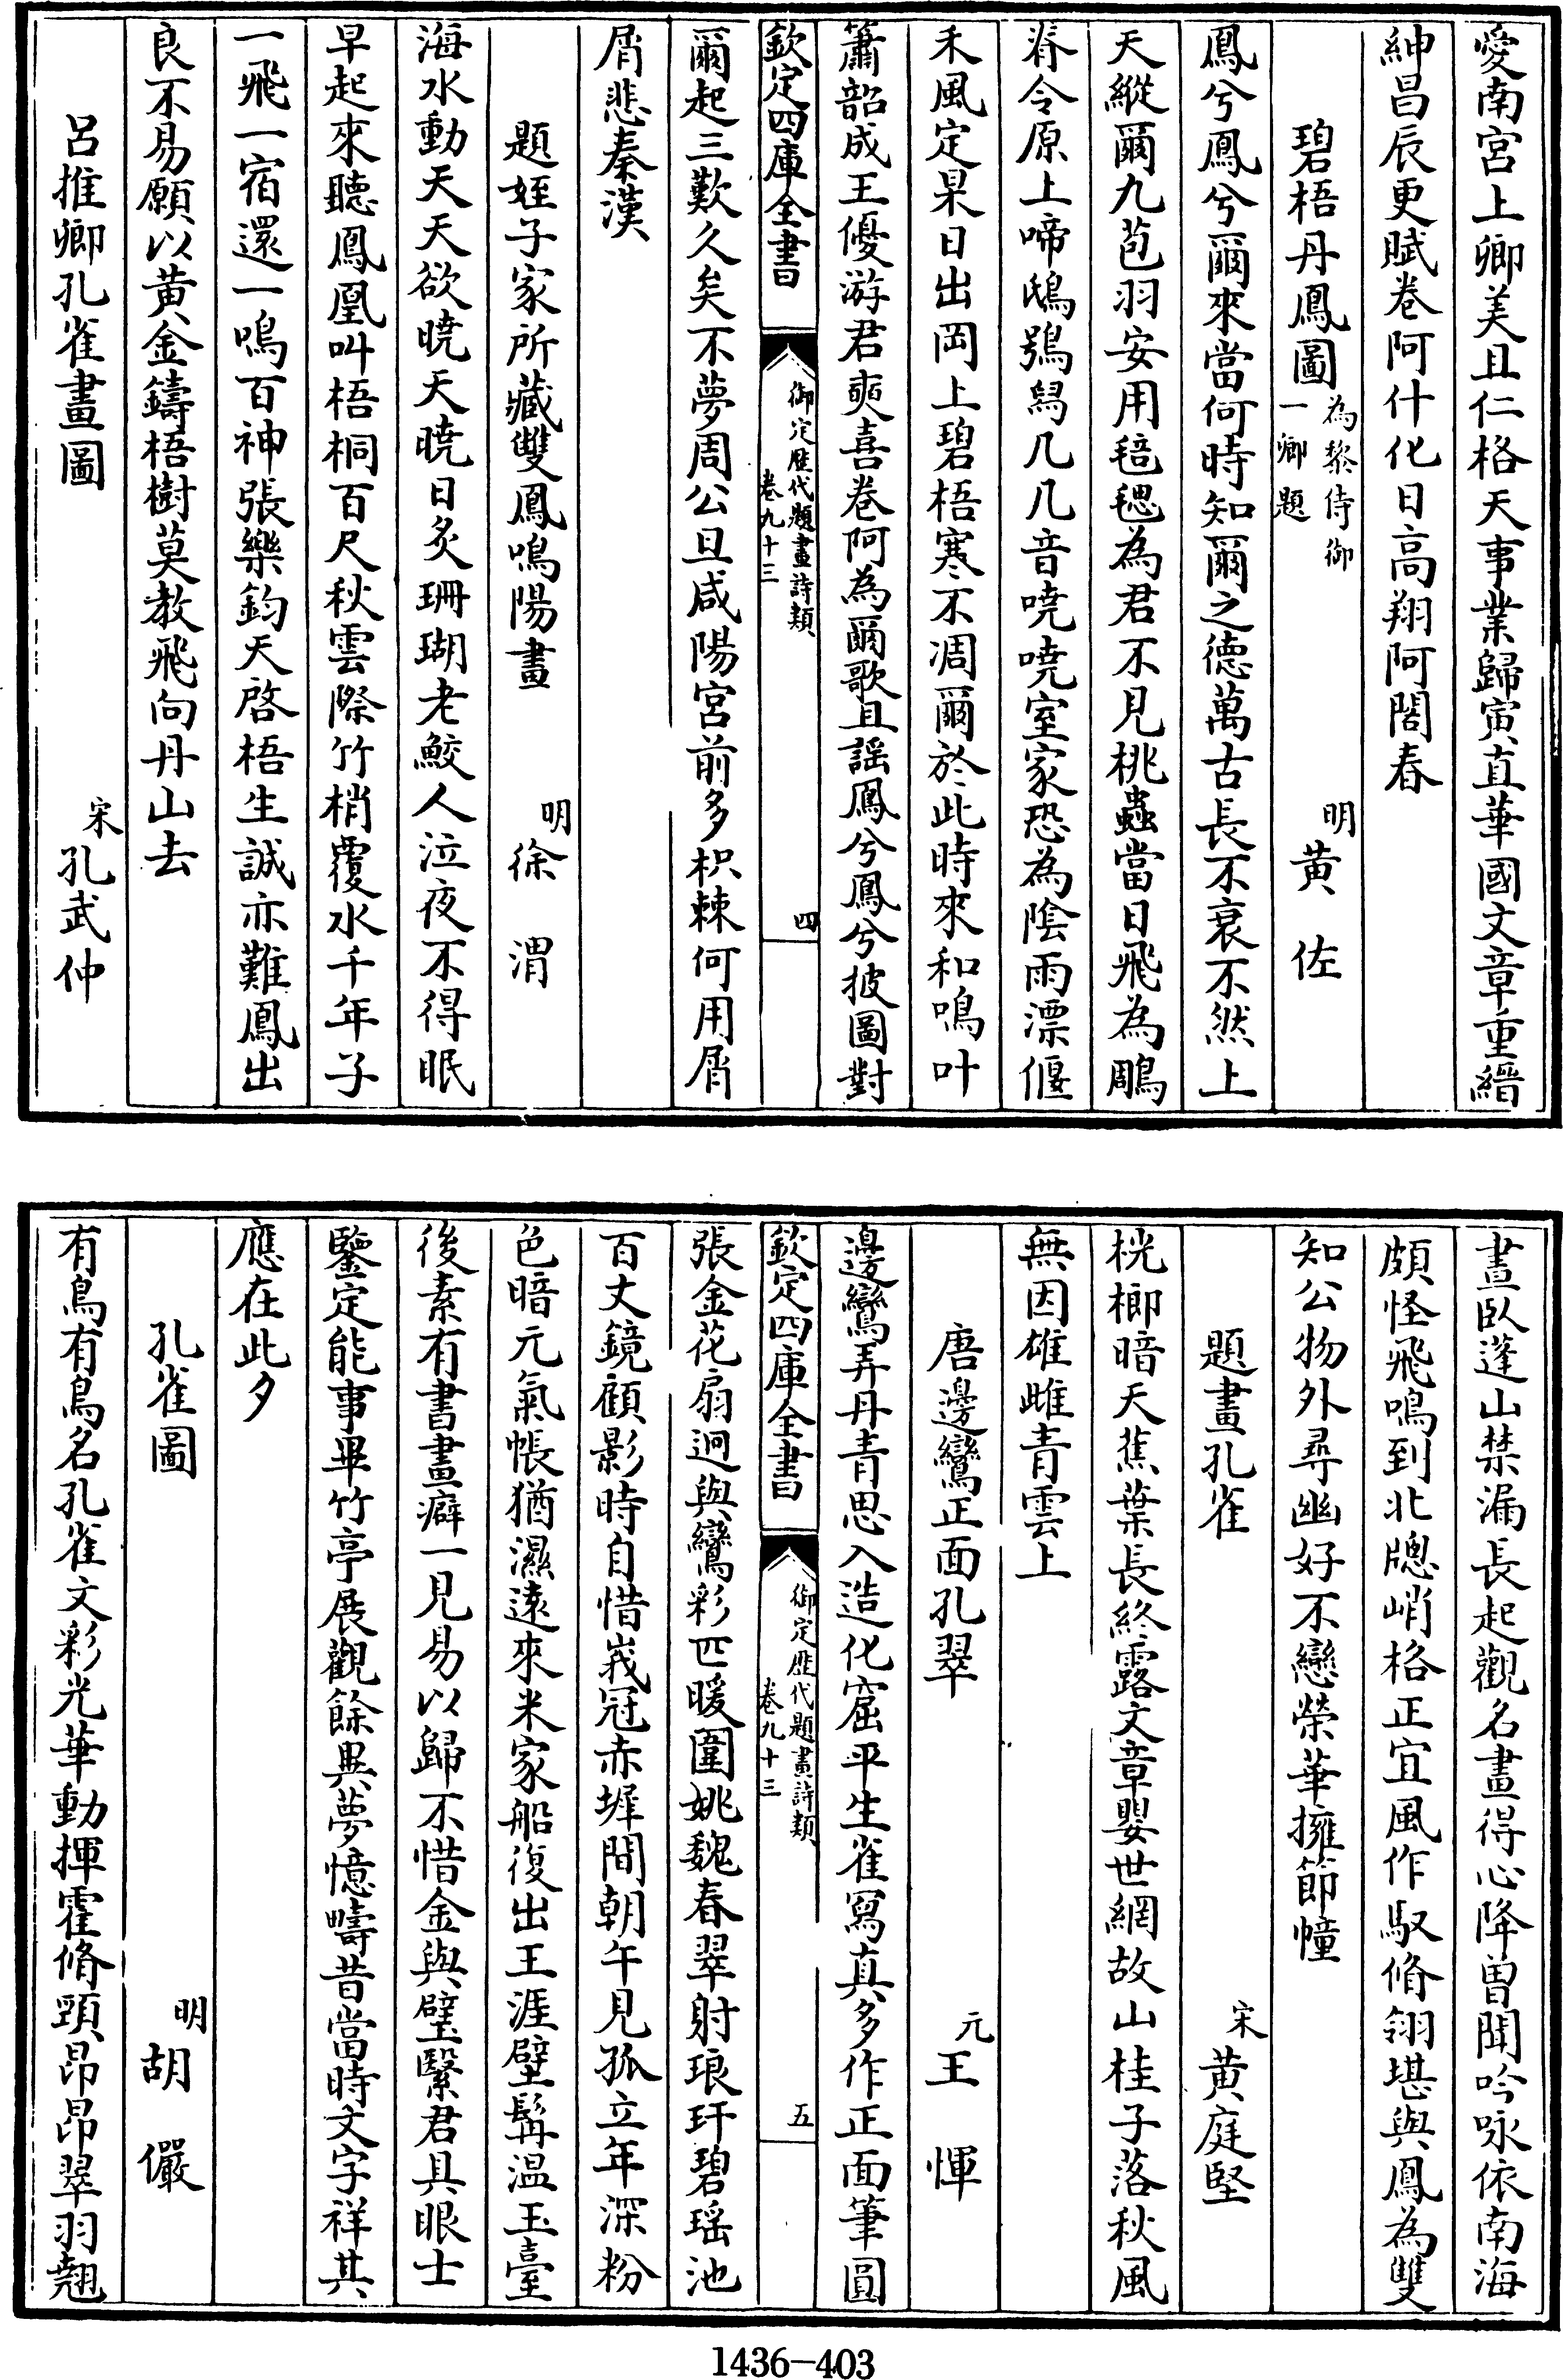 愛南宮上卿美且仁格天事業歸寅直華國文章重縉
紳昌辰更賦卷阿什化日高翔阿閣春
碧梧丹鳳圖為黎侍御一卿題 明黃佐
鳳兮鳳兮爾來當何時知爾之德萬古長不衰不然上
天縱爾九苞羽安用毰毸為君不見桃蟲當日飛為鵰
脊令原上啼鴟鴞舄几几音嘵嘵室家恐為陰雨漂偃
禾風定杲日出岡上碧梧寒不凋爾於此時來和鳴叶
簫韶成王優游君奭喜卷阿為爾歌且謡鳳兮鳳兮披圖對
欽定四庫全書 御定歷代題畫詩類 卷九十三 四
爾起三歎久矣不夢周公旦咸陽宮前多枳棘何用屑
屑悲秦漢
題姪子家所藏雙鳳鳴陽畫 明徐渭
海水動天天欲曉天曉日炙珊瑚老鮫人泣夜不得眠
早起來聽鳳凰叫梧桐百尺秋雲際竹梢覆水千年子
一飛一宿還一鳴百神張樂鈞天啓梧生誠亦難鳳出
良不易願以黄金鑄梧樹莫教飛向丹山去
呂推卿孔雀畫圖 宋孔武仲
晝臥蓬山禁漏長起觀名畫得心降曽聞吟咏依南海
頗怪飛鳴到北牕峭格正宜風作馭脩翎堪與鳳為雙
知公物外尋幽好不戀榮華擁節幢
題畫孔雀 宋黄庭堅
桄榔暗天蕉葉長終露文章嬰世網故山桂子落秋風
無因雄雌青雲上
唐邊鸞正面孔翠 元王惲
邊鸞弄丹青思入造化窟平生雀寫真多作正面筆圓
欽定四庫全書 御定歷代題畫詩類 卷九十三 五
張金花扇迥與鸞彩匹暖圍姚魏春翠射琅玕碧瑤池
百丈鏡顧影時自惜峩冠赤墀間朝午見孤立年深粉
色暗元氣悵猶濕遠來米家船復出王涯壁髯温玉臺
後素有書畫癖一見易以歸不惜金與璧繄君具眼士
鑒定能事畢竹亭展觀餘異夢憶疇昔當時文字祥其
應在此夕
孔雀圖 明胡儼
有鳥有鳥名孔雀文彩光華動揮霍脩頸昂昂翠羽翹
1436-403